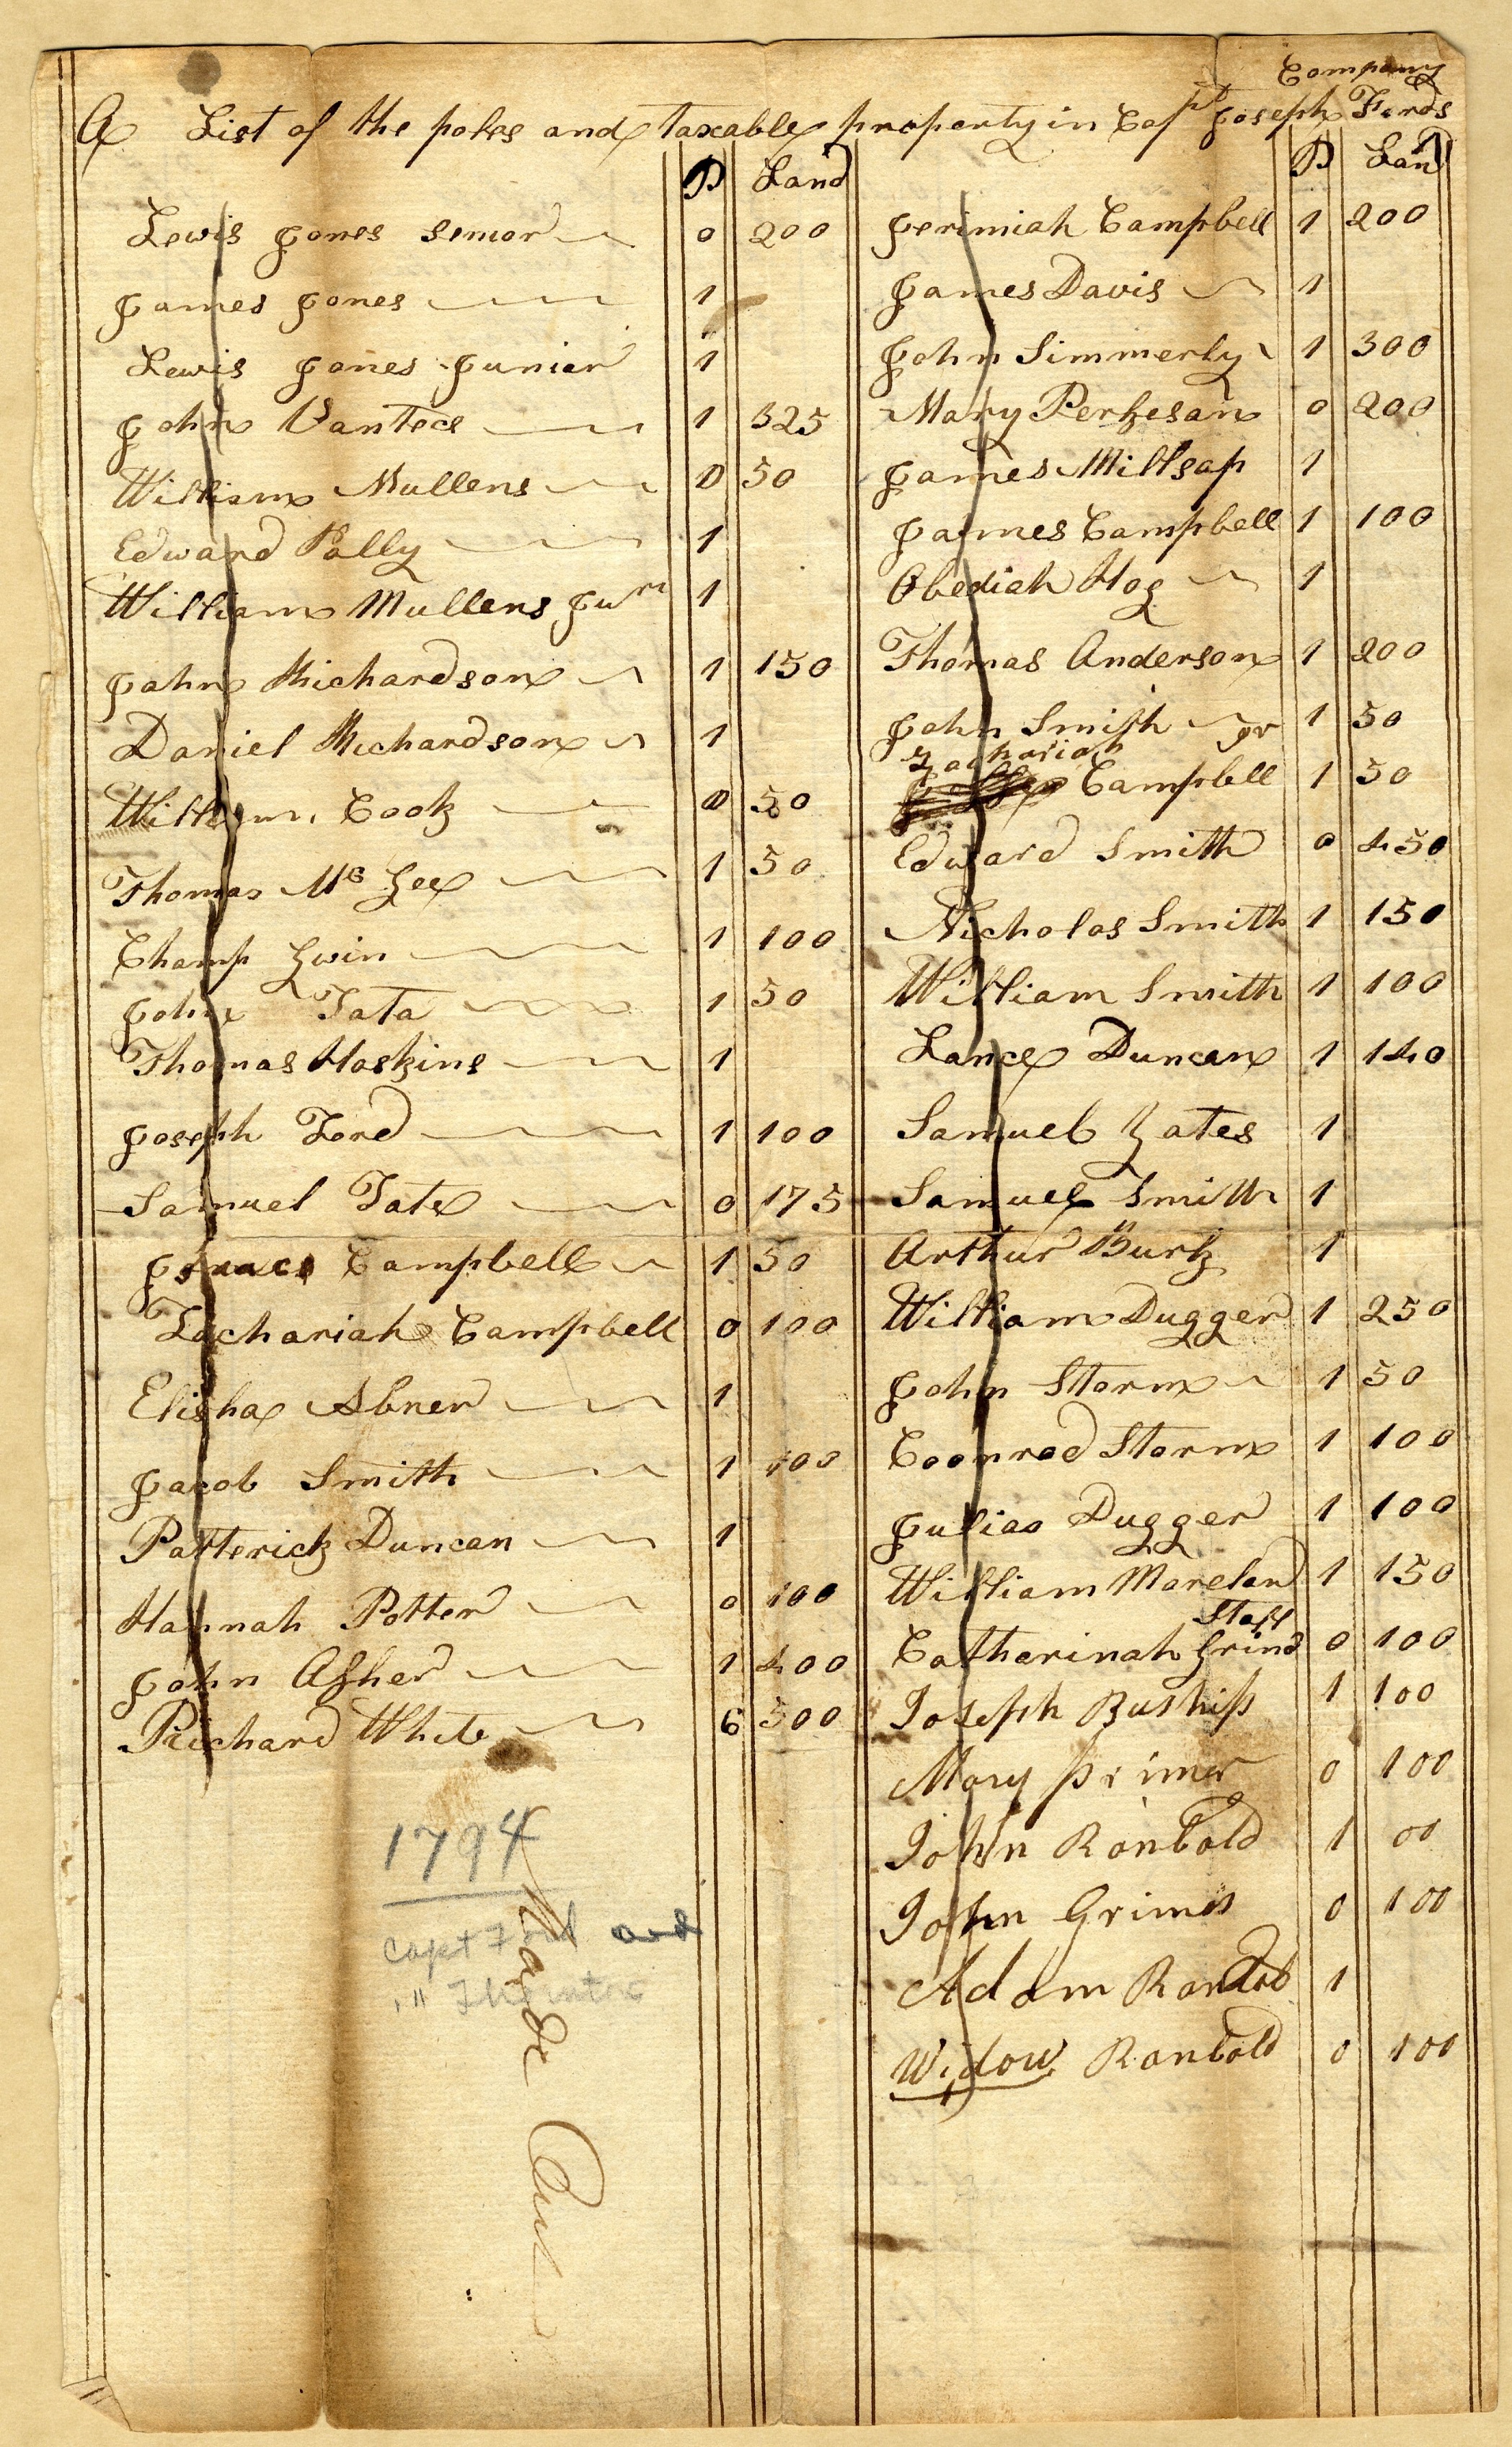 Company
A List of the poles and taxable property in Capt Joseph Fords
P Land
Lewis Jones senior 0 200
James Jones 1
Lewis Jones Junior 1
John Vantece 1 325
William Mullens 0 50
Edward Polly 1
William Mullens Junr 1
John Richardson 1 150
Daniel Richardson 1
William Cook 0 50
Thomas Mc Gee 1 50
Champ Gwin 1 100
John Tata 1 50
Thomas Hoskins 1
Joseph Ford 1 100
Samuel Tate 0 175
Campbell 1 50
Zachariah Campbell 0 100
Elisha Abner 1
Jacob Smith 1 100
Patterick Duncan 1
Hannah Potter 0 100
John Asher 1 400
Richard White 6 500
1794
Capt Ford and
"
P Land
Jerimiah Campbell 1 200
James Davis 1
John Simmerly 1 300
Mary Perkesan 0 200
James Millsap 1
James Campbell 1 100
Obediah Hog 1
Thomas Anderson 1 200
John Smith Jr 1 50
Zachariah
Campbell 1 50
Edward Smith 0 450
Nicholas Smith 1 150
William Smith 1 100
Lance Duncan 1 140
Samuel Yates 1
Samuel Smith 1
Arthur Burk 1
William Dugger 1 250
John Storm 1 50
Coonrod Storm 1 100
Julias Dugger 1 100
William Moreland 1 150
Staff
Catherinah Grind 0 100
Joseph Buship 1 100
Mary primer 0 100
John Ranbold 1 00
John Grimes 0 100
Adam Ranbob 1
Widow Ranbold 0 100